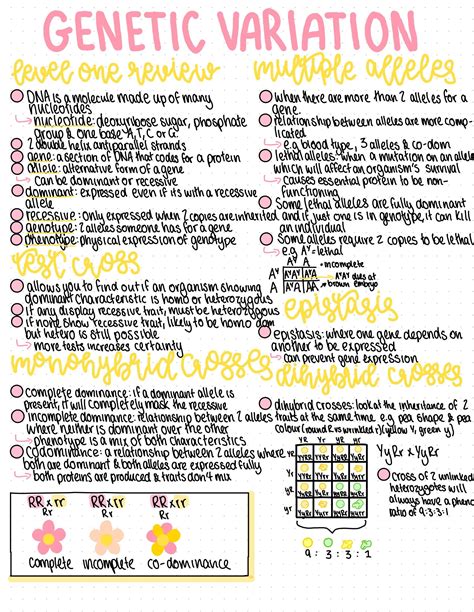 GENETIC VARIATION
level one review
DNA is a molecule made up of many
nucleotides
nucleotide: deoxyribose sugar, phosphate
group & one base A, T, C or G
2 double helix antiparallel strands
gene: a section of DNA that codes for a protein
allele: alternative form of a gene
Can be dominant or recessive
dominant: expressed even if its with a recessive
allele
recessive: Only expressed when 2 copies are inherited
genotype: 2 alleles someone has for a gene
phenotype: physical expression of genotype
test cross
allows you to find out if an organism showing
dominant characteristic is homo or heterozygous
if any display recessive trait, must be heterozygous
if none show recessive trait, likely to be homo dom
but hetero is still possible
more tests increases certainty
monohybrid crosses
complete dominance: if a dominant allele is
present, it will completely mask the recessive
incomplete dominance: relationship between 2 alleles
where neither is dominant over the other
phenotype is a mix of both characteristics
codominance: a relationship between 2 alleles where
both are dominant & both alleles are expressed fully
both proteins are produced & traits don't mix
RR x rr
Rr
complete
RR x rr
Rr
incomplete
RR x rr
Rr
co-dominance
multiple alleles
when there are more than 2 alleles for a
gene
relationship between alleles are more compl-
icated
e.g blood type, 3 alleles & co-dom
lethal alleles: when a mutation on an allele
which will affect an organism's survival
causes essential protein to be non-
functioning
Some lethal alleles are fully dominant
and if just one is in genotype, it can kill
an individual
Some alleles require 2 copies to be lethal
e.g Aʸ = lethal
= incomplete
Aʸ A
Aʸ AʸAʸ AʸA
AʸAʸ dies at
brown embryo
epistasis
epistasis: where one gene depends on
another to be expressed
can prevent gene expression
dihybrid crosses
dihybrid crosses: look at the inheritance of 2
traits at the same time e.g. pea shape & pea
colour (round R vs wrinkled r) (yellow Y, green y)
YR Yr yR yr
YR
Yr
yR
yr
9 : 3 : 3 : 1
YyRr x YyRr
cross of 2 unlinked
heterozygotes will
always have a pheno
ratio of 9:3:3:1